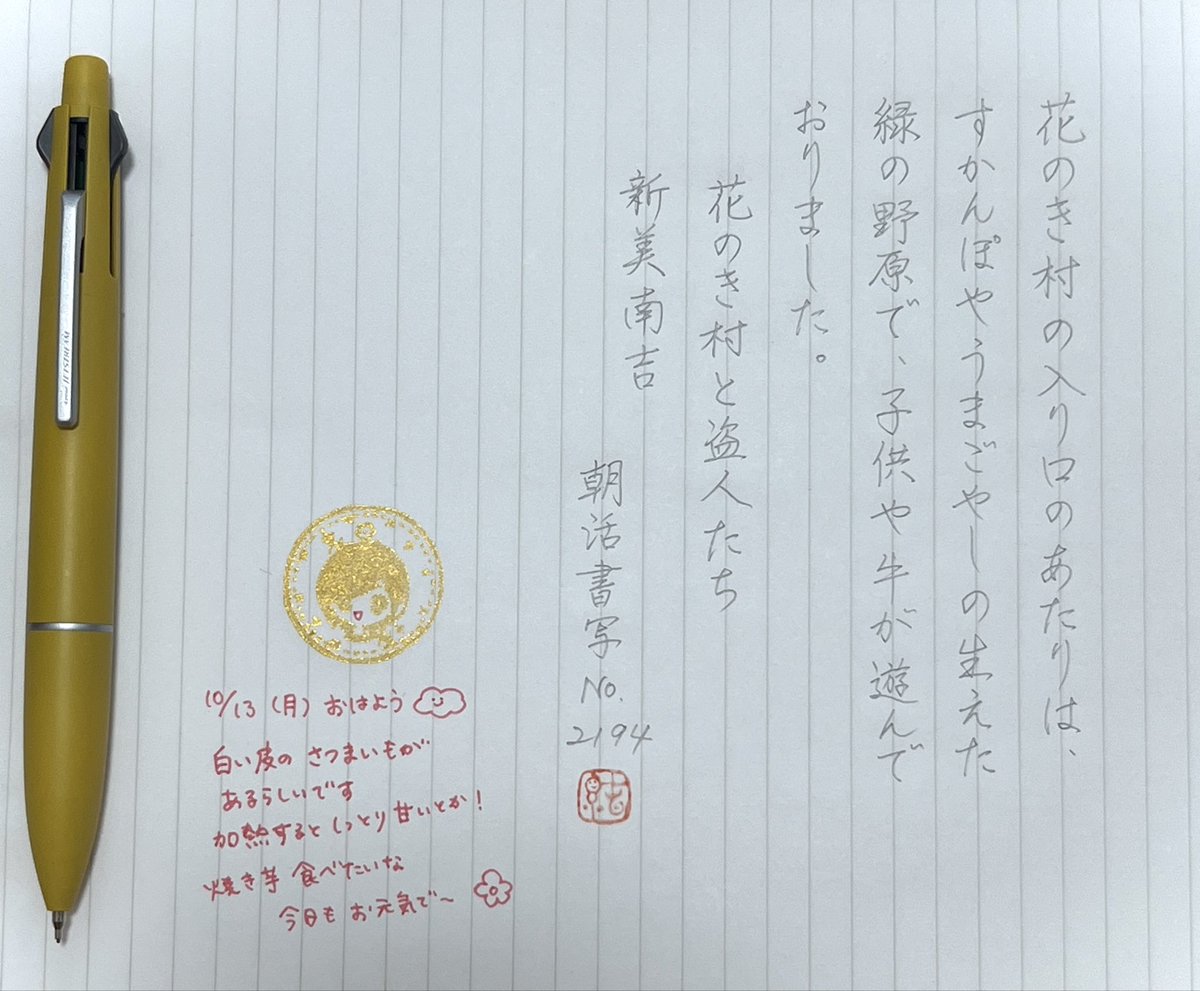 花のき村の入り口のあたりは、
すかんぽやうまごやしの生えた
緑の野原で、子供や牛が遊んで
おりました。
花のき村と盗人たち
新美南吉
朝活書写 No. 2194
10/13 (月) おはよう
白い皮の さつまいもが
あるらしいです
加熱すると しっとり 甘いとか!
焼き芋 食べたいな
今日も お元気で〜